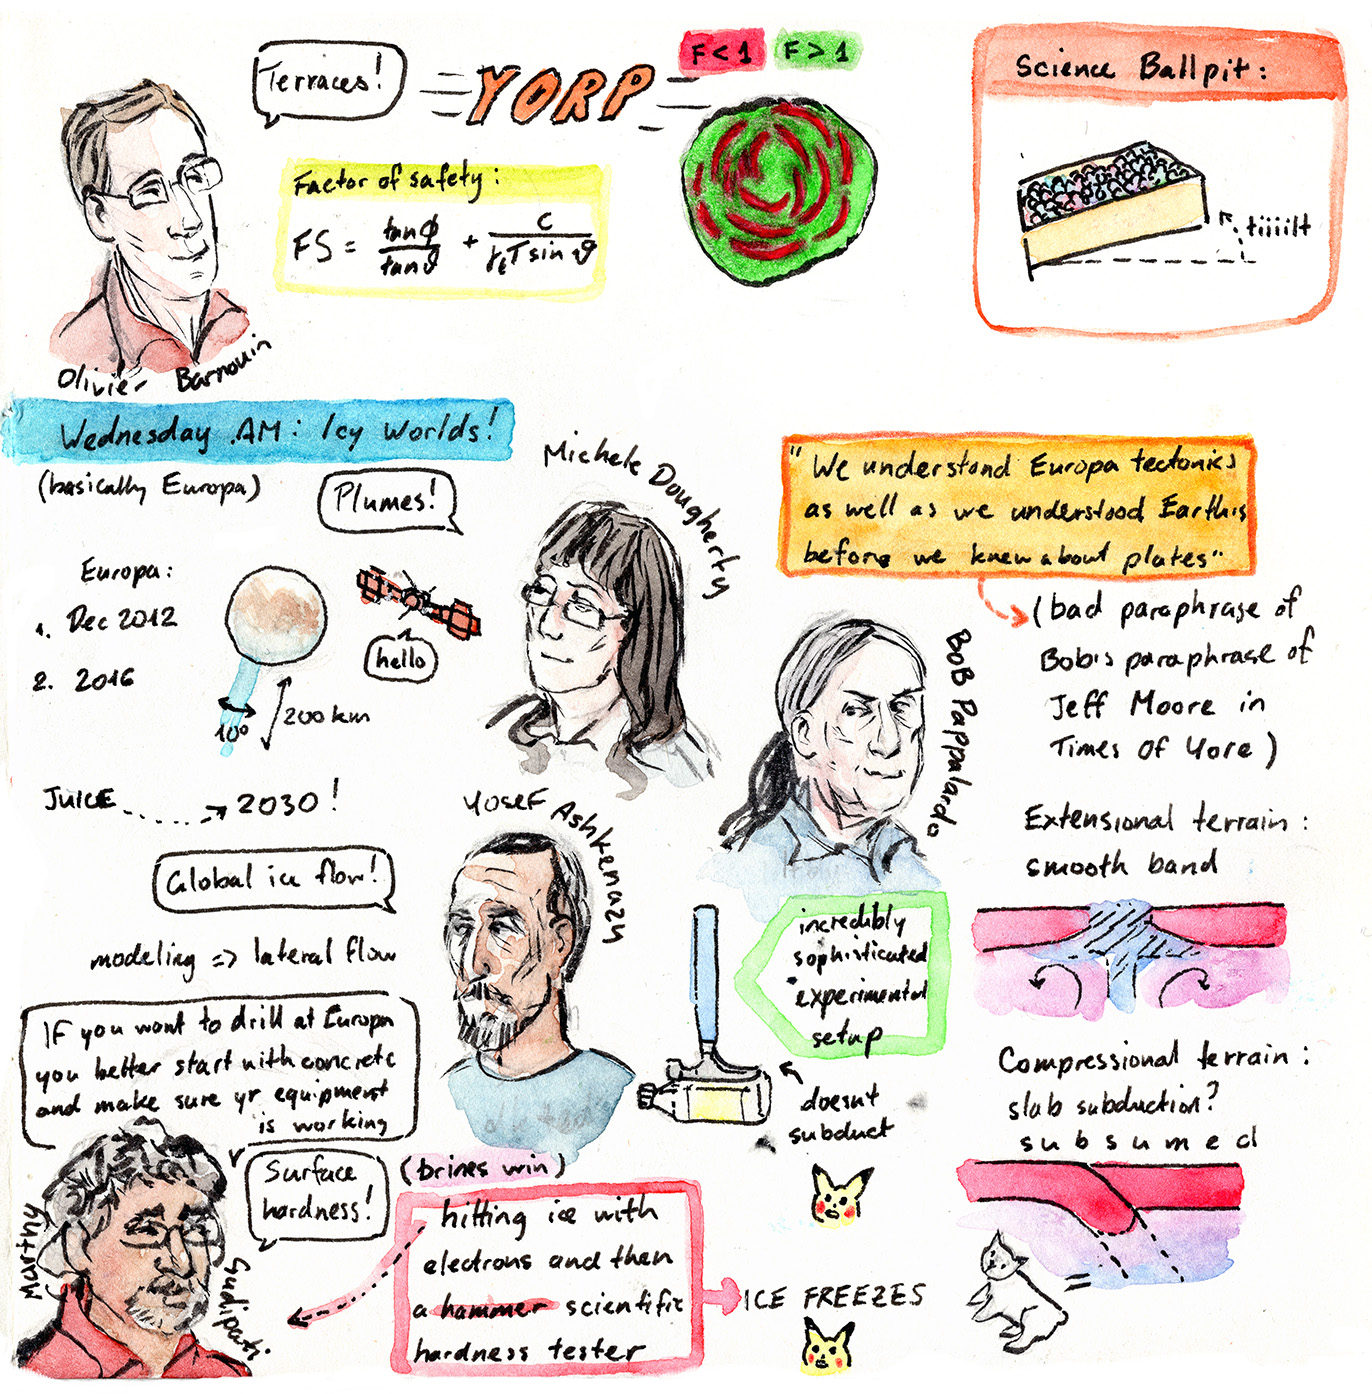 Terraces!
YORP
F < 1
F > 1
Science Ballpit:
tiiiilt
Factor of safety:
FS = tanϕ/tanϑ + c/γtT sin ϑ
Olivier Barnouin
Wednesday AM: Icy Worlds!
(basically Europa)
Plumes!
Michele Dougherty
Europa:
1. Dec 2012
2. 2016
10°
200 km
hello
JUICE
2030!
"We understand Europa tectonics
as well as we understood Earth's
before we knew about plates"
(bad paraphrase of
Bob's paraphrase of
Jeff Moore in
Times Of Yore)
BoB Pappalardo
Extensional terrain:
smooth band
Yosef Ashkenazy
Global ice flow!
modeling => lateral flow
incredibly
sophisticated
experimental
setup
doesn't
subduct
Compressional terrain:
slab subduction?
subsumed
If you want to drill at Europa
you better start with concrete
and make sure yr equipment
is working
Surface
hardness!
Marthy
Gudipati
(brines win)
hitting ice with
electrons and then
a hammer scientific
hardness tester
ICE FREEZES